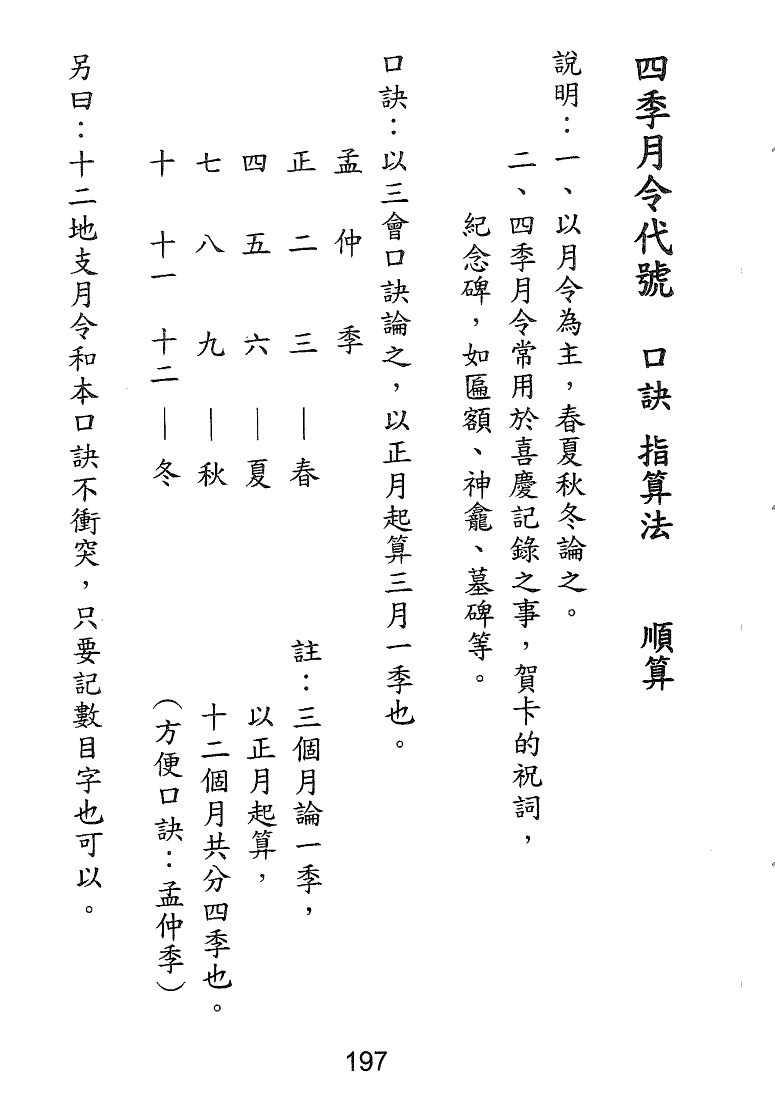 四季月令代號　口訣 指算法　順算
說明：一、以月令為主，春夏秋冬論之。
二、四季月令常用於喜慶記錄之事，賀卡的祝詞，
紀念碑，如匾額、神龕、墓碑等。
口訣：以三會口訣論之，以正月起算三月一季也。
孟　仲　季
正　二　三｜春
四　五　六｜夏
七　八　九｜秋
十　十一　十二｜冬
註：三個月論一季，
以正月起算，
十二個月共分四季也。
（方便口訣：孟仲季）
另曰：十二地支月令和本口訣不衝突，只要記數目字也可以。
197